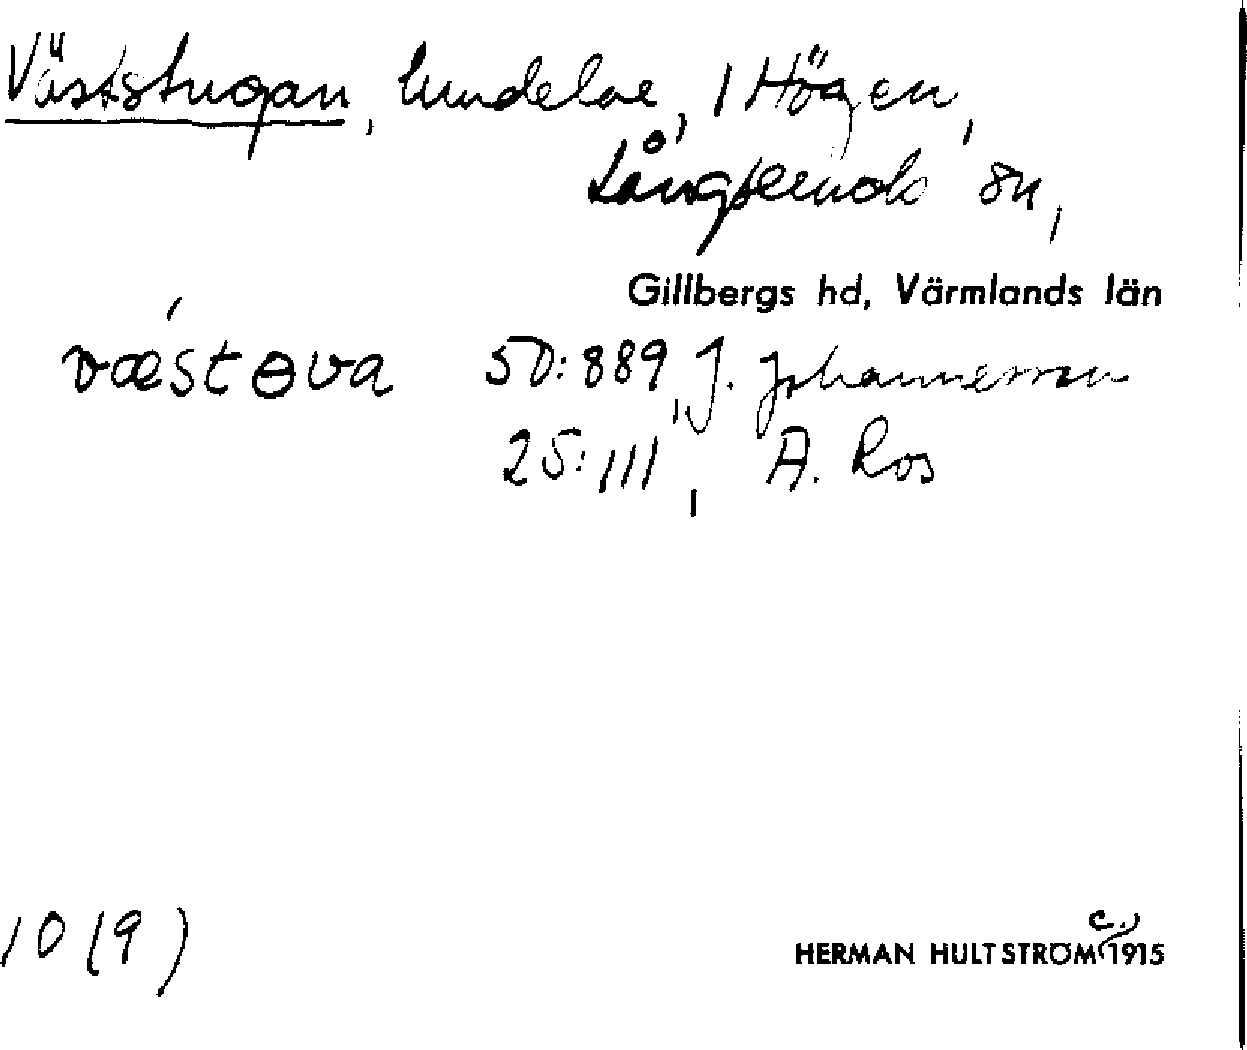 Väststugan, lundelar, 1 Högen,
Långseruds sn,
Gillbergs hd, Värmlands län
væ´stɵva 50:889, J. Johannesson
25:111, A. Ros
10 (9)
HERMAN HULTSTRÖM c. 1915